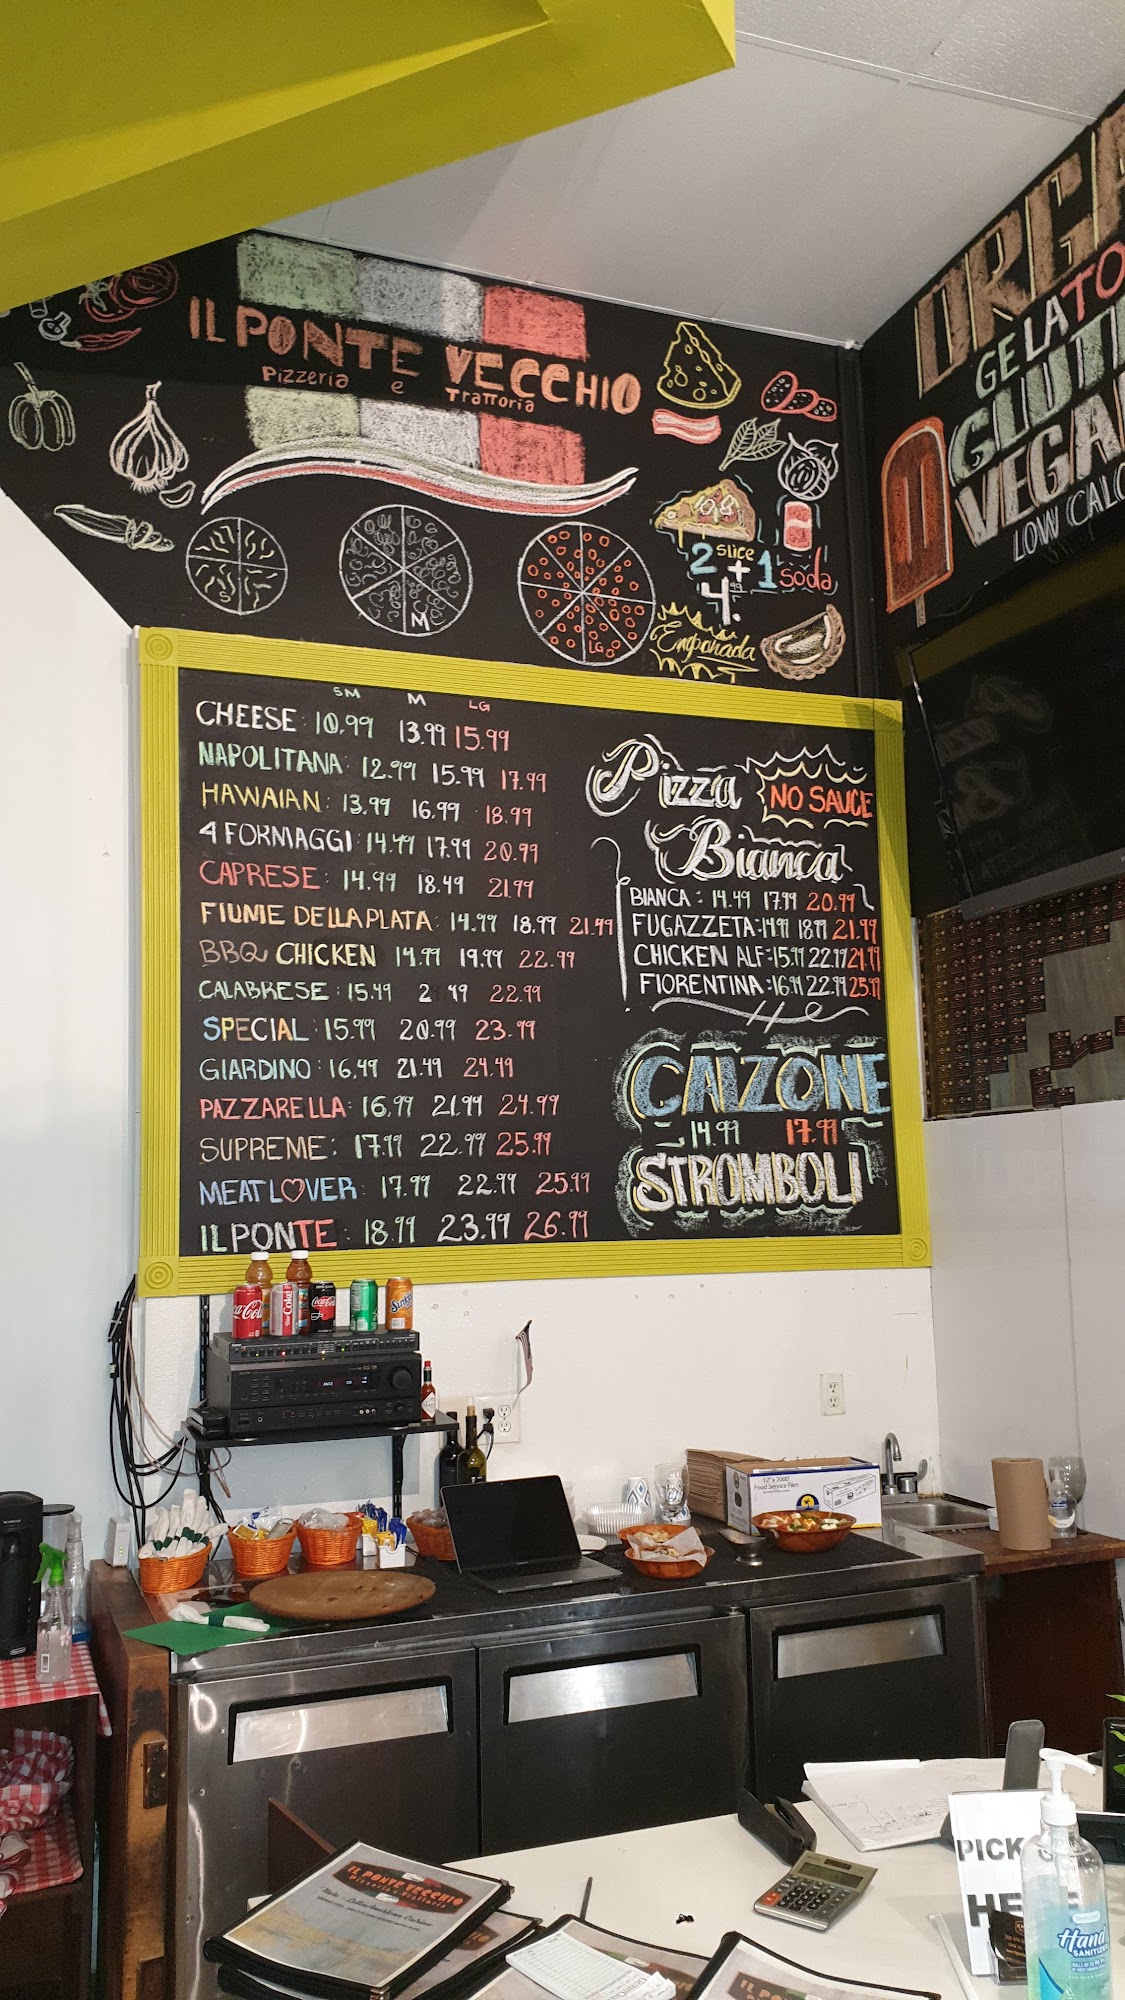 IL PONTE VECCHIO
Pizzeria e Trattoria
ORGA
GELATO
GLUT
VEGA
LOW CALO
2 slice + 1 soda
4.99
M
LG
Empanada
SM M LG
CHEESE: 10.99 13.99 15.99
NAPOLITANA: 12.99 15.99 17.99
HAWAIAN: 13.99 16.99 18.99
4 FORMAGGI: 14.99 17.99 20.99
CAPRESE: 14.99 18.49 21.99
FIUME DELLA PLATA: 14.99 18.99 21.99
BBQ CHICKEN 14.99 19.99 22.99
CALABRESE: 15.49 2 49 22.99
SPECIAL: 15.99 20.99 23.99
GIARDINO: 16.49 21.49 24.49
PAZZARELLA: 16.99 21.99 24.99
SUPREME: 17.99 22.99 25.99
MEAT LOVER: 17.99 22.99 25.99
IL PONTE: 18.99 23.99 26.99
Pizza
NO SAUCE
Bianca
BIANCA: 14.49 17.99 20.99
FUGAZZETA: 14.99 18.99 21.99
CHICKEN ALF: 15.99 22.99 24.99
FIORENTINA: 16.99 22.99 25.99
CALZONE
14.99 17.99
STROMBOLI
Coca-Cola
Diet Coke
Coca-Cola
Sunkist
12" x 2000'
Food Service Film
IL PONTE VECCHIO
Pizzeria e Trattoria
Italo - Latin American Cuisine
IL PONTE
PICK
HE
Hand
SANITIZER